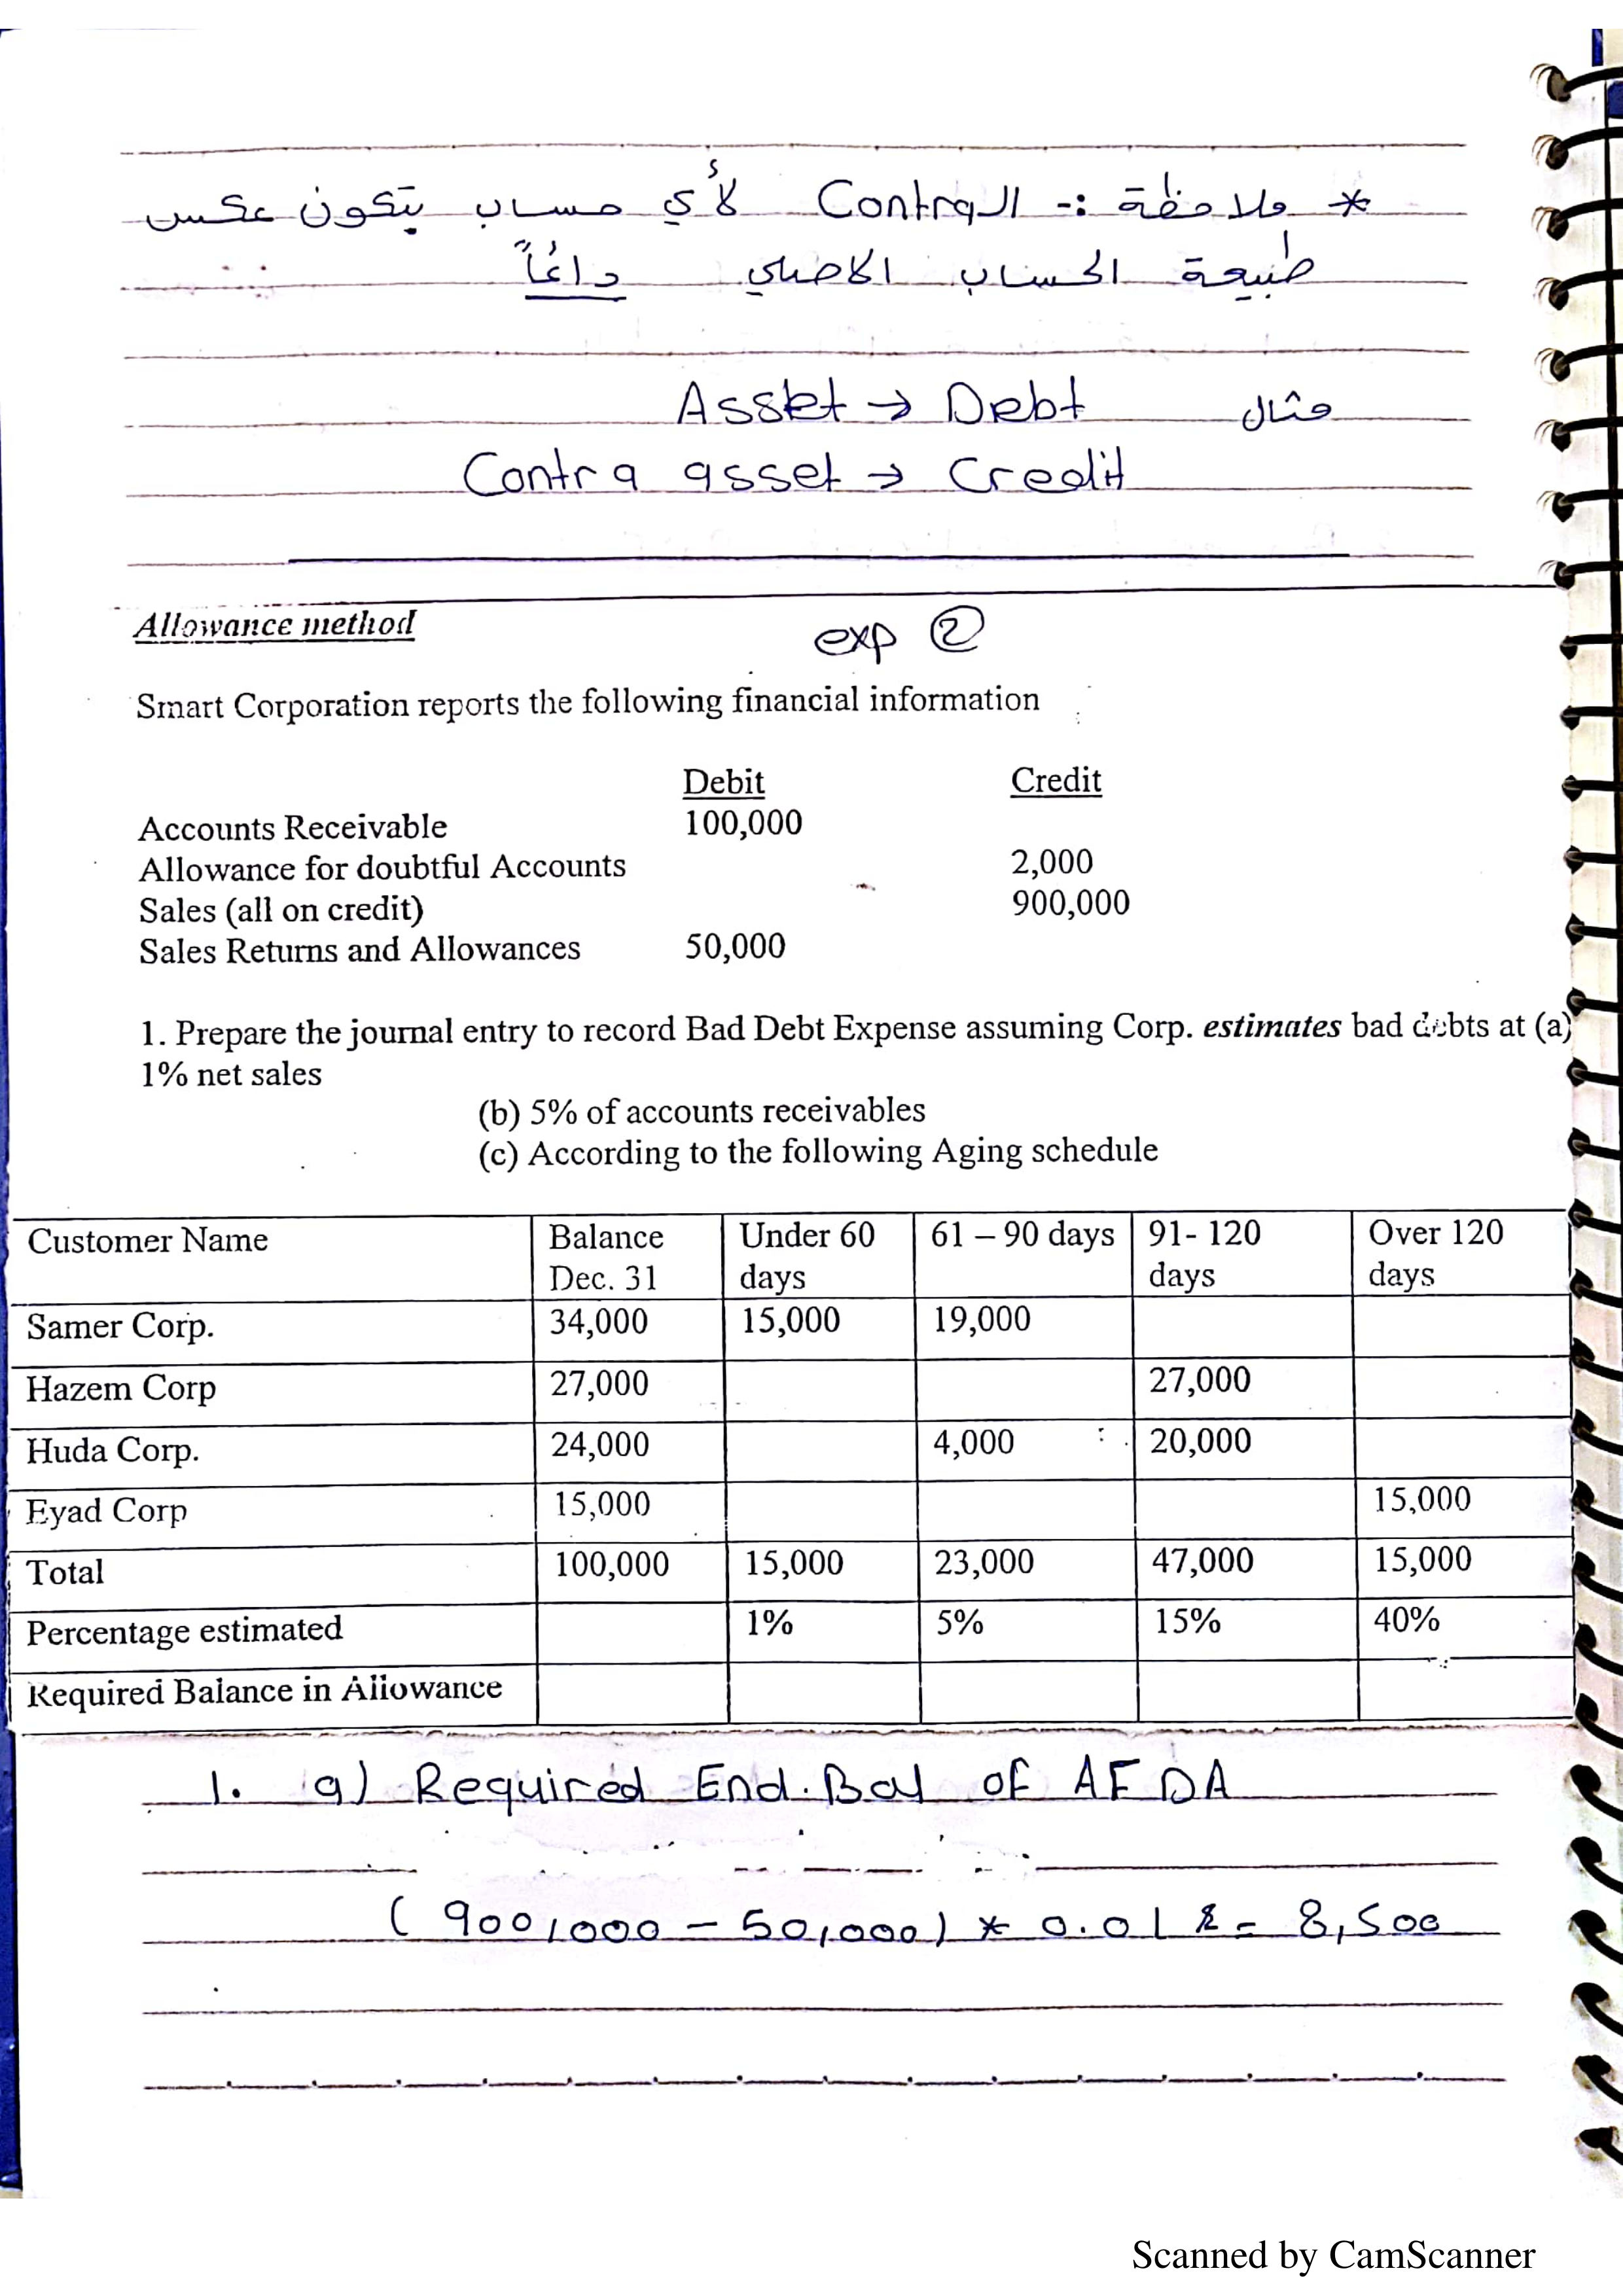 * ملاحظة :- الـ Contra لأي حساب بتكون عكس
طبيعة الحساب الاصلي دائماً
مثال Asset → Debt
Contra asset → Credit
Allowance method exp ②
Smart Corporation reports the following financial information
Debit Credit
Accounts Receivable 100,000
Allowance for doubtful Accounts 2,000
Sales (all on credit) 900,000
Sales Returns and Allowances 50,000
1. Prepare the journal entry to record Bad Debt Expense assuming Corp. estimates bad debts at (a)
1% net sales
(b) 5% of accounts receivables
(c) According to the following Aging schedule
Customer Name Balance Dec. 31 Under 60 days 61 – 90 days 91- 120 days Over 120 days
Samer Corp. 34,000 15,000 19,000
Hazem Corp 27,000 27,000
Huda Corp. 24,000 4,000 20,000
Eyad Corp 15,000 15,000
Total 100,000 15,000 23,000 47,000 15,000
Percentage estimated 1% 5% 15% 40%
Required Balance in Allowance
1. a) Required End. Bal of AFDA
( 900,000 – 50,000) * 0.01 = 8,500
Scanned by CamScanner